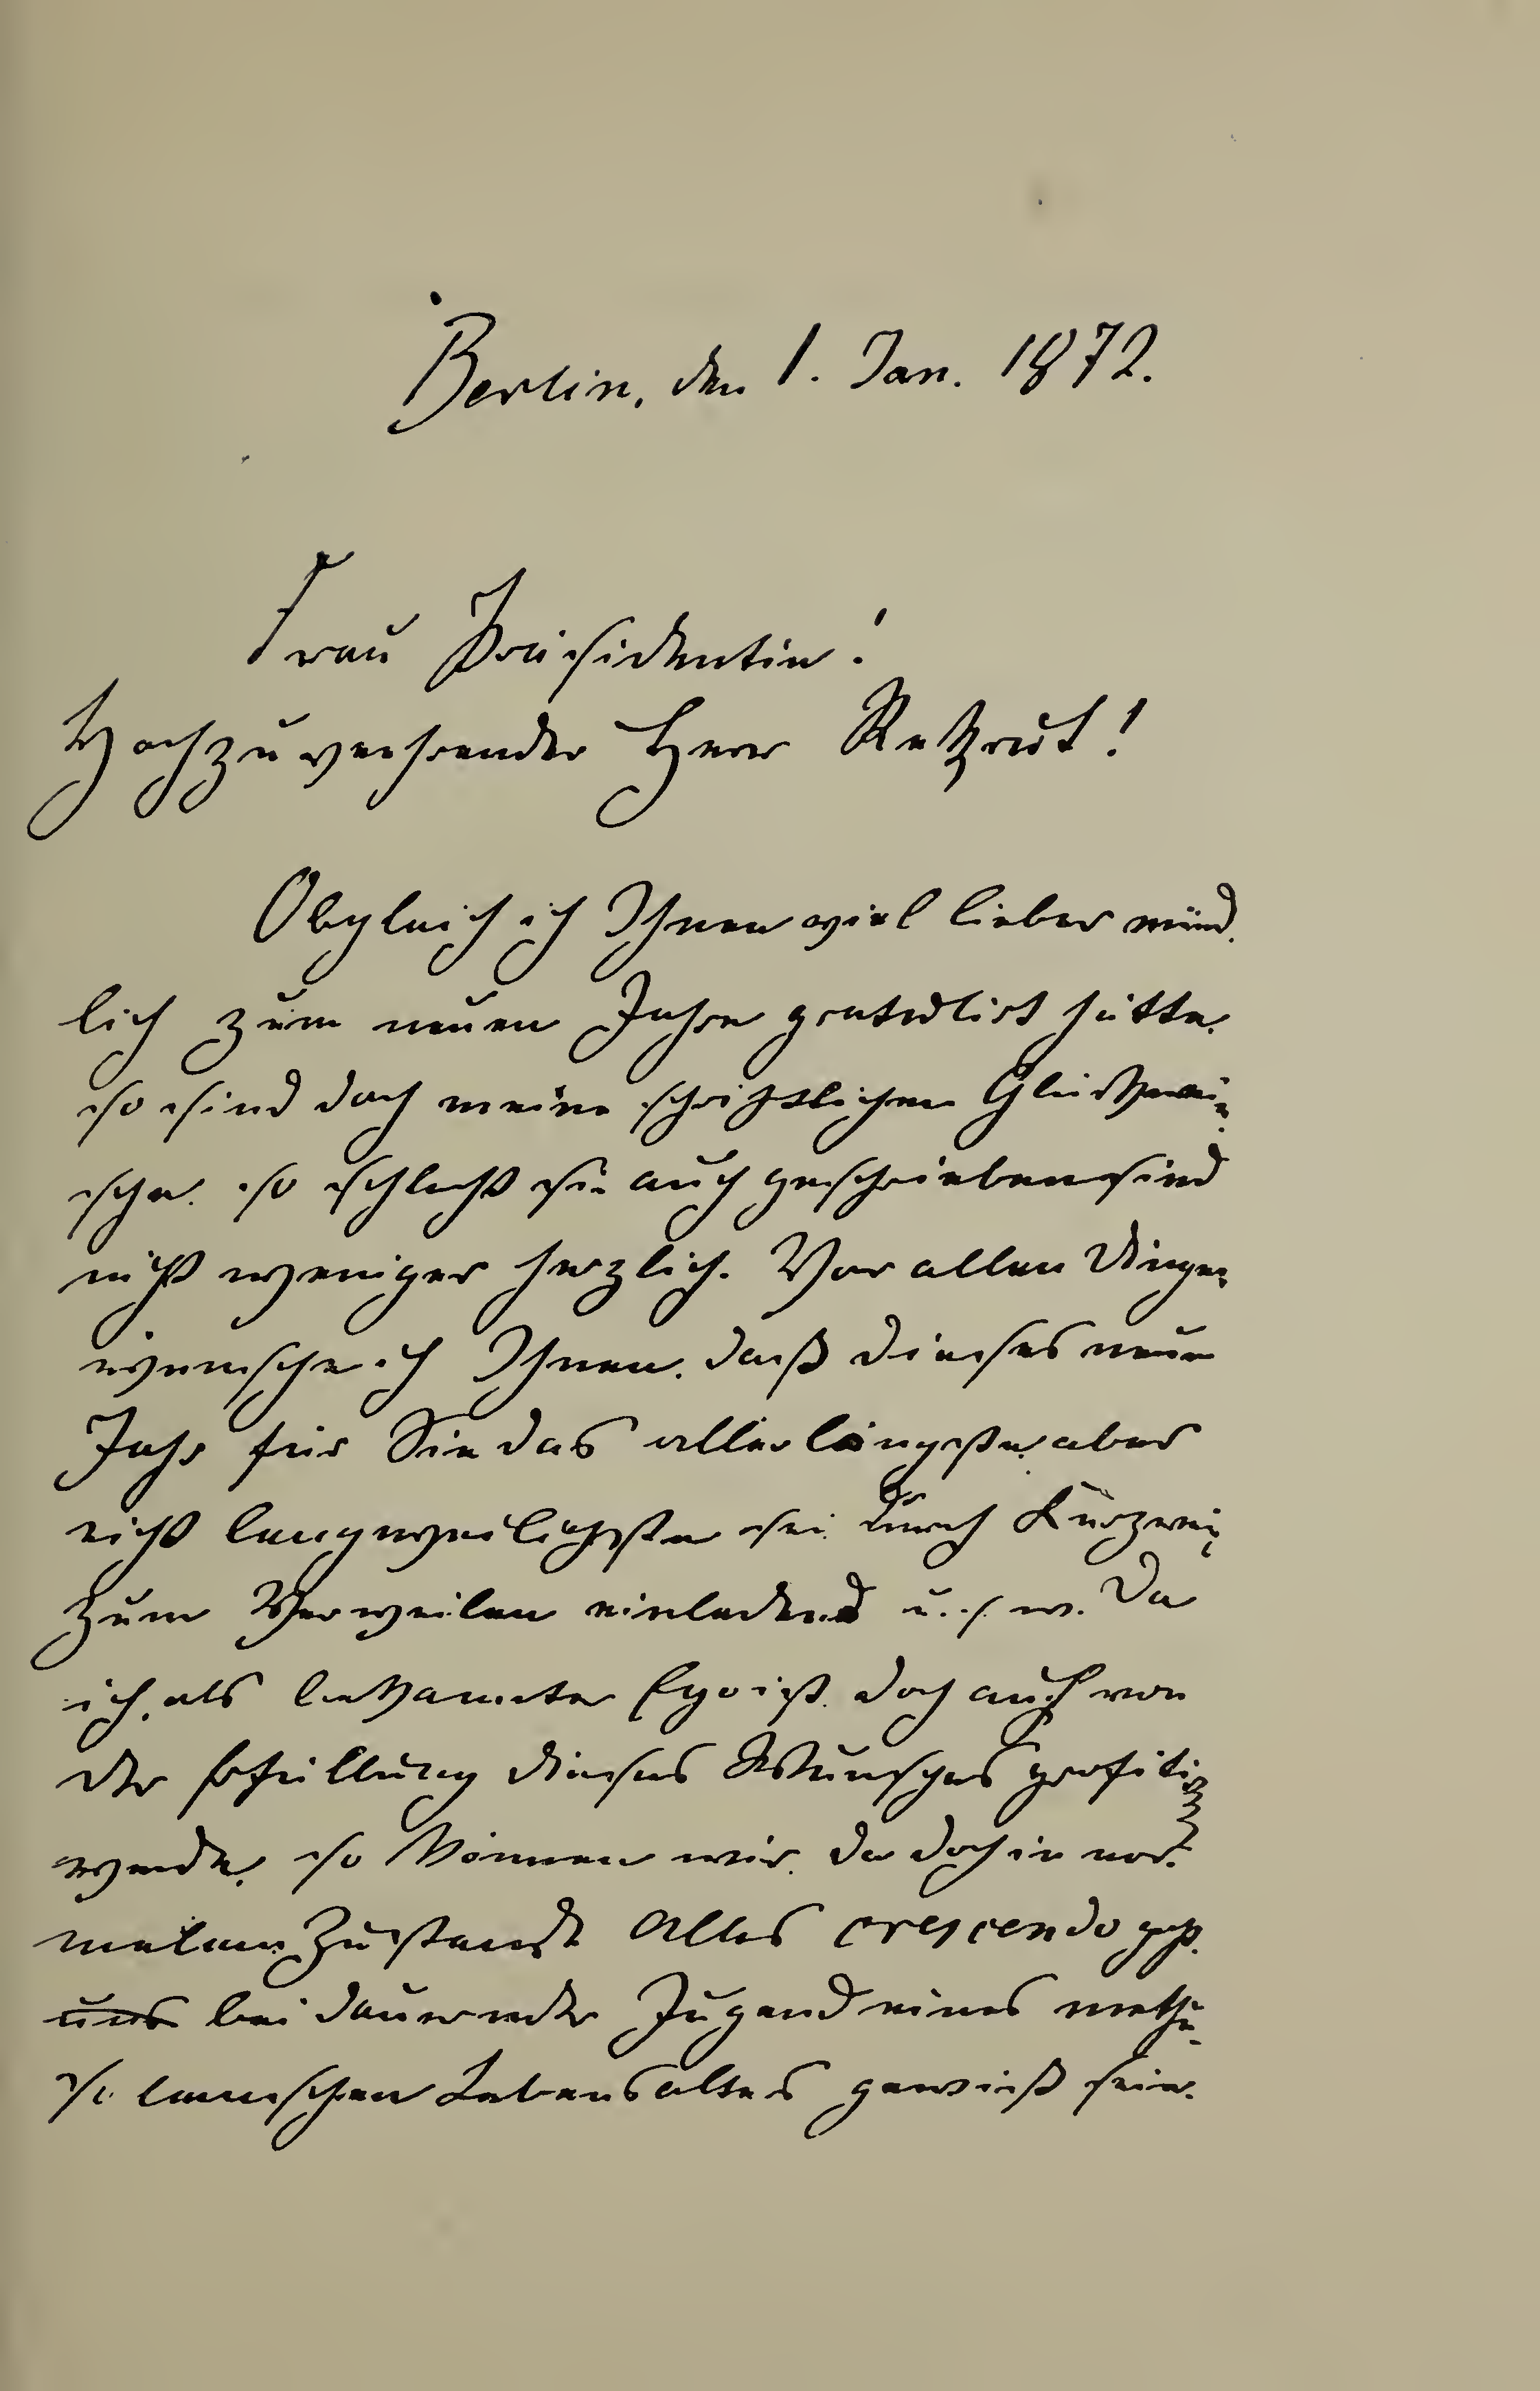 Berlin, den 1. Jan. 1872.
Frau Präsidentin!
Hochzuverehrender Herr
Obgleich ich Ihnen viel lieber münd-
lich zum neuen Jahre gratulirt hätte,
so sind doch meine schriftlichen Glückwün-
sche, so schlecht sie auch geschrieben sind
nicht weniger herzlich. Vor allen Dingen
wünsche ich Ihnen, daß dieses neue
Jahr für Sie das allerlängste, aber
nicht langweiligste sei, durch Kurzweil
zum Verweilen einladend u. s. w. Da
ich, als bekannter Egoist, doch auch von
der Erfüllung dieses Wunsches profitiren
werde, so können wir, da doch in nor-
malem Zustande Alles crescendo geht,
uns bei dauernder Jugend eines methu-
salemischen Lebensalters gewiß sein.